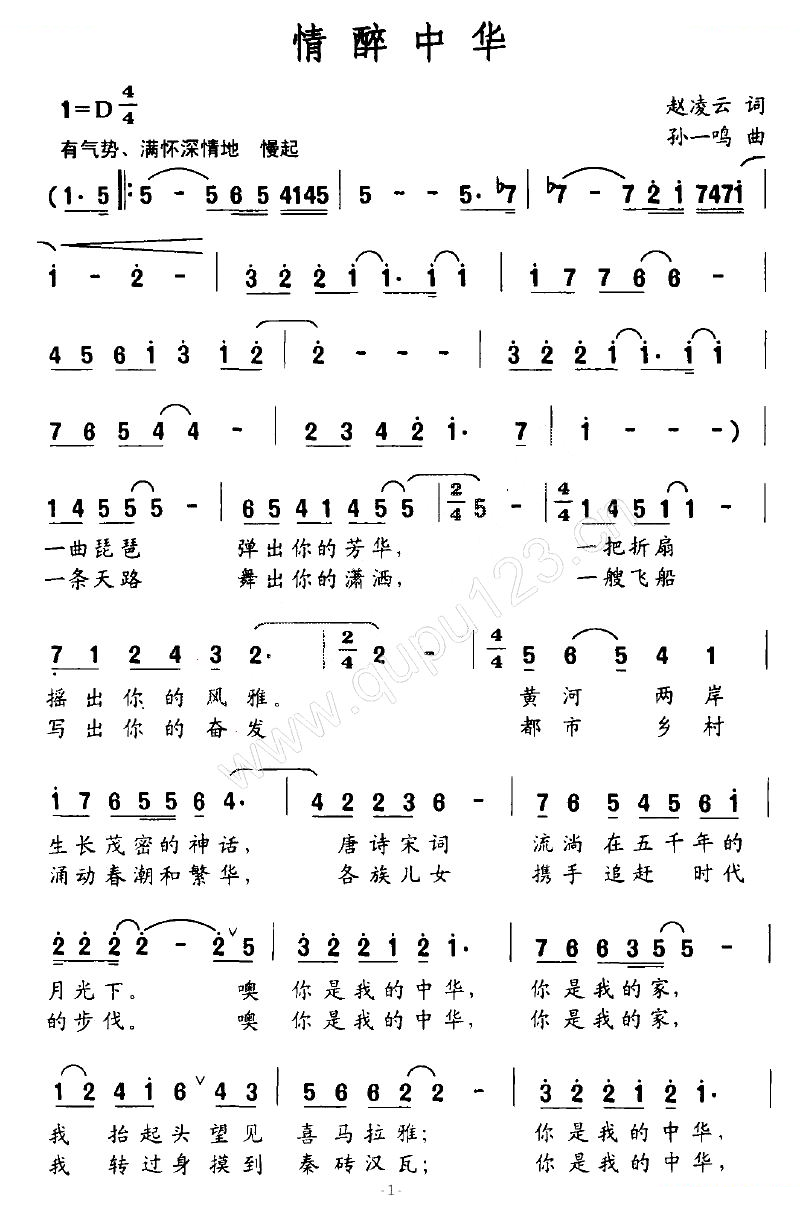 情醉中华
1=D 4/4
赵凌云 词
孙一鸣 曲
有气势、满怀深情地 慢起
(1·5 ‖: 5 - 5 6 5 4145 | 5 - - 5·♭7 | ♭7 - 7 2 1 7471 |
1 - 2 - | 3 2 2 1 1· 1 1 | 1 7 7 6 6 - |
4 5 6 1 3 1 2 | 2 - - - | 3 2 2 1 1· 1 1 |
7 6 5 4 4 - | 2 3 4 2 1· 7 | 1 - - ) |
1 4 5 5 5 - | 6 5 4 1 4 5 5 | 2/4 5 - | 4/4 1 4 5 1 1 - |
一曲琵琶 弹出你的芳华, 一把折扇
一条天路 舞出你的潇洒, 一艘飞船
7 1 2 4 3 2· | 2/4 2 - | 4/4 5 6 5 4 1 |
摇出你的风雅。 黄河 两岸
写出你的奋发 都市 乡村
1 7 6 5 5 6 4· | 4 2 2 3 6 - | 7 6 5 4 5 6 1 |
生长茂密的神话, 唐诗宋词 流淌在五千年的
涌动春潮和繁华, 各族儿女 携手追赶 时代
2 2 2 2 - 2 ∨ 5 | 3 2 2 1 2 2 1· | 7 6 6 3 5 5 - |
月光下。 噢 你是我的中华, 你是我的家,
的步伐。 噢 你是我的中华, 你是我的家,
1 2 4 1 6 ∨ 4 3 | 5 6 6 2 2 - | 3 2 2 1 2 2 1· |
我 抬起头望见 喜马拉雅; 你是我的中华,
我 转过身摸到 秦砖汉瓦; 你是我的中华,
-1-
www.qupu123.cn